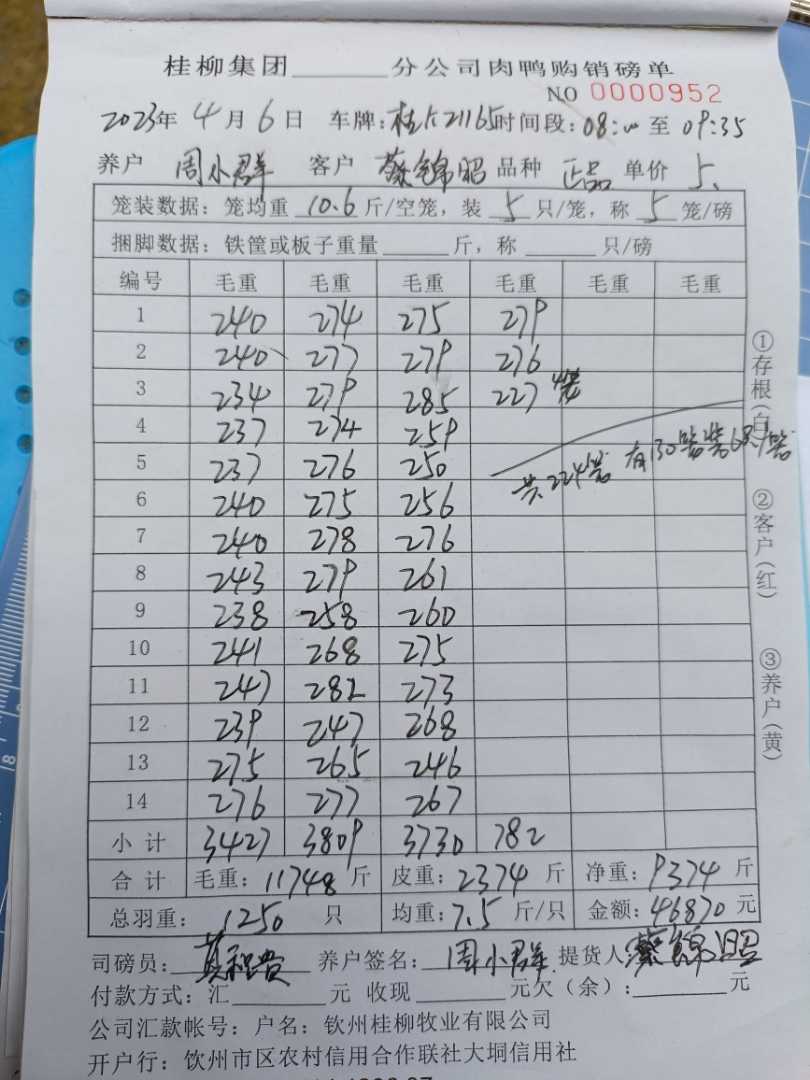 桂柳集团______分公司肉鸭购销磅单
NO 0000952
2023年 4月 6日 车牌:桂K21165 时间段:08:00 至 09:35
养户 周小群 客户 蔡锦昭 品种 正品 单价 5.
笼装数据: 笼均重 10.6 斤/空笼, 装 5 只/笼, 称 5 笼/磅
捆脚数据: 铁筐或板子重量______斤, 称______只/磅
编号 毛重 毛重 毛重 毛重 毛重 毛重
1 240 274 275 279
2 240 277 279 276
3 234 279 285 227 4笼
4 237 274 259
5 237 276 250
共224笼 有130笼装6只/笼
6 240 275 256
7 240 278 276
8 243 279 261
9 238 258 260
10 241 268 275
11 247 282 273
12 239 247 268
13 275 265 246
14 276 277 267
小计 3427 3809 3730 782
合计 毛重: 11748 斤 皮重: 2374 斤 净重: 9374 斤
总羽重: 1250 只 均重: 7.5 斤/只 金额: 46870 元
司磅员: 养户签名: 周小群 提货人 蔡锦昭
付款方式: 汇______元 收现______元欠(余):______元
公司汇款帐号: 户名: 钦州桂柳牧业有限公司
开户行: 钦州市区农村信用合作联社大垌信用社
①存根(白)
②客户(红)
③养户(黄)